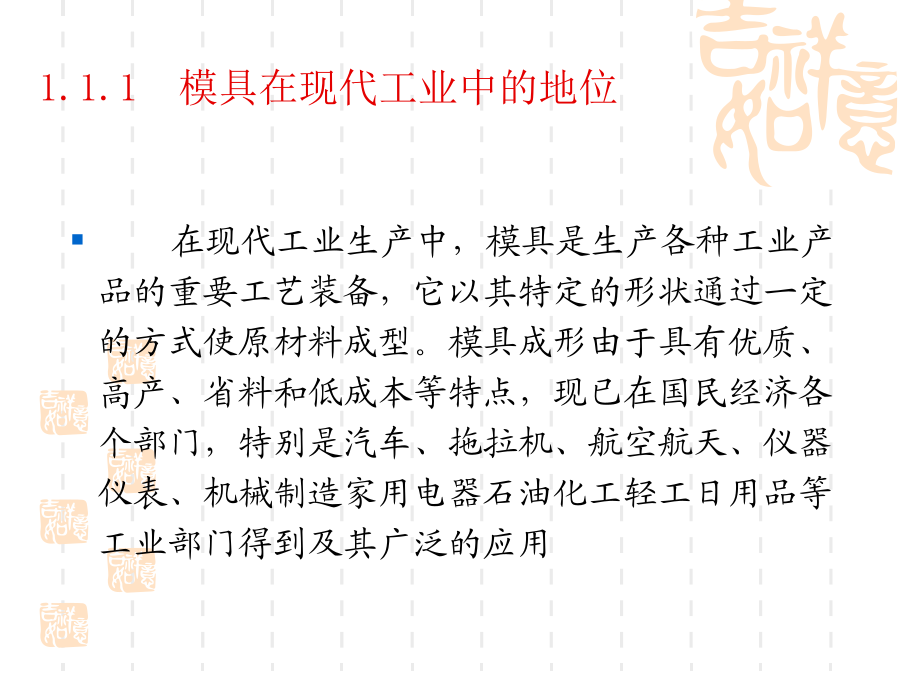 吉祥如意
1.1.1 模具在现代工业中的地位
在现代工业生产中，模具是生产各种工业产
品的重要工艺装备，它以其特定的形状通过一定
的方式使原材料成型。模具成形由于具有优质、
高产、省料和低成本等特点，现已在国民经济各
个部门，特别是汽车、拖拉机、航空航天、仪器
仪表、机械制造家用电器石油化工轻工日用品等
工业部门得到及其广泛的应用
吉祥如意
吉祥如意
吉祥如意
吉祥如意
吉祥如意
吉祥如意